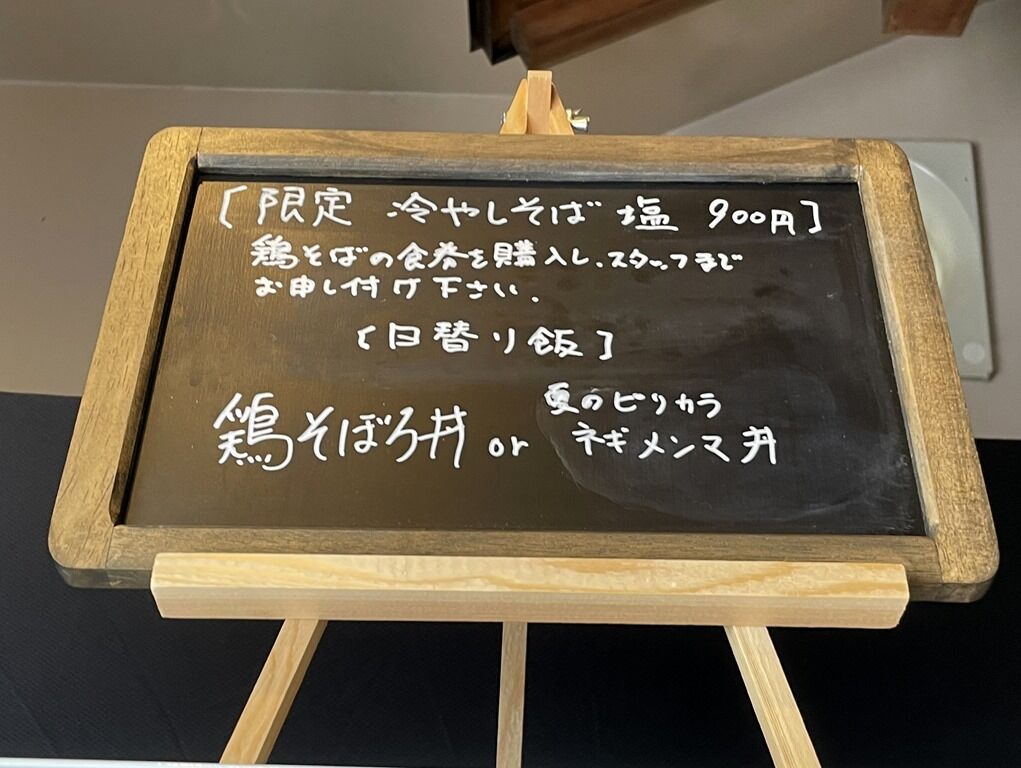 [限定 冷やしそば 塩 900円]
鶏そばの食券を購入し、スタッフまで
お申し付け下さい.
[日替り飯]
鶏そぼろ丼 or 夏のピリカラ
ネギメンマ丼